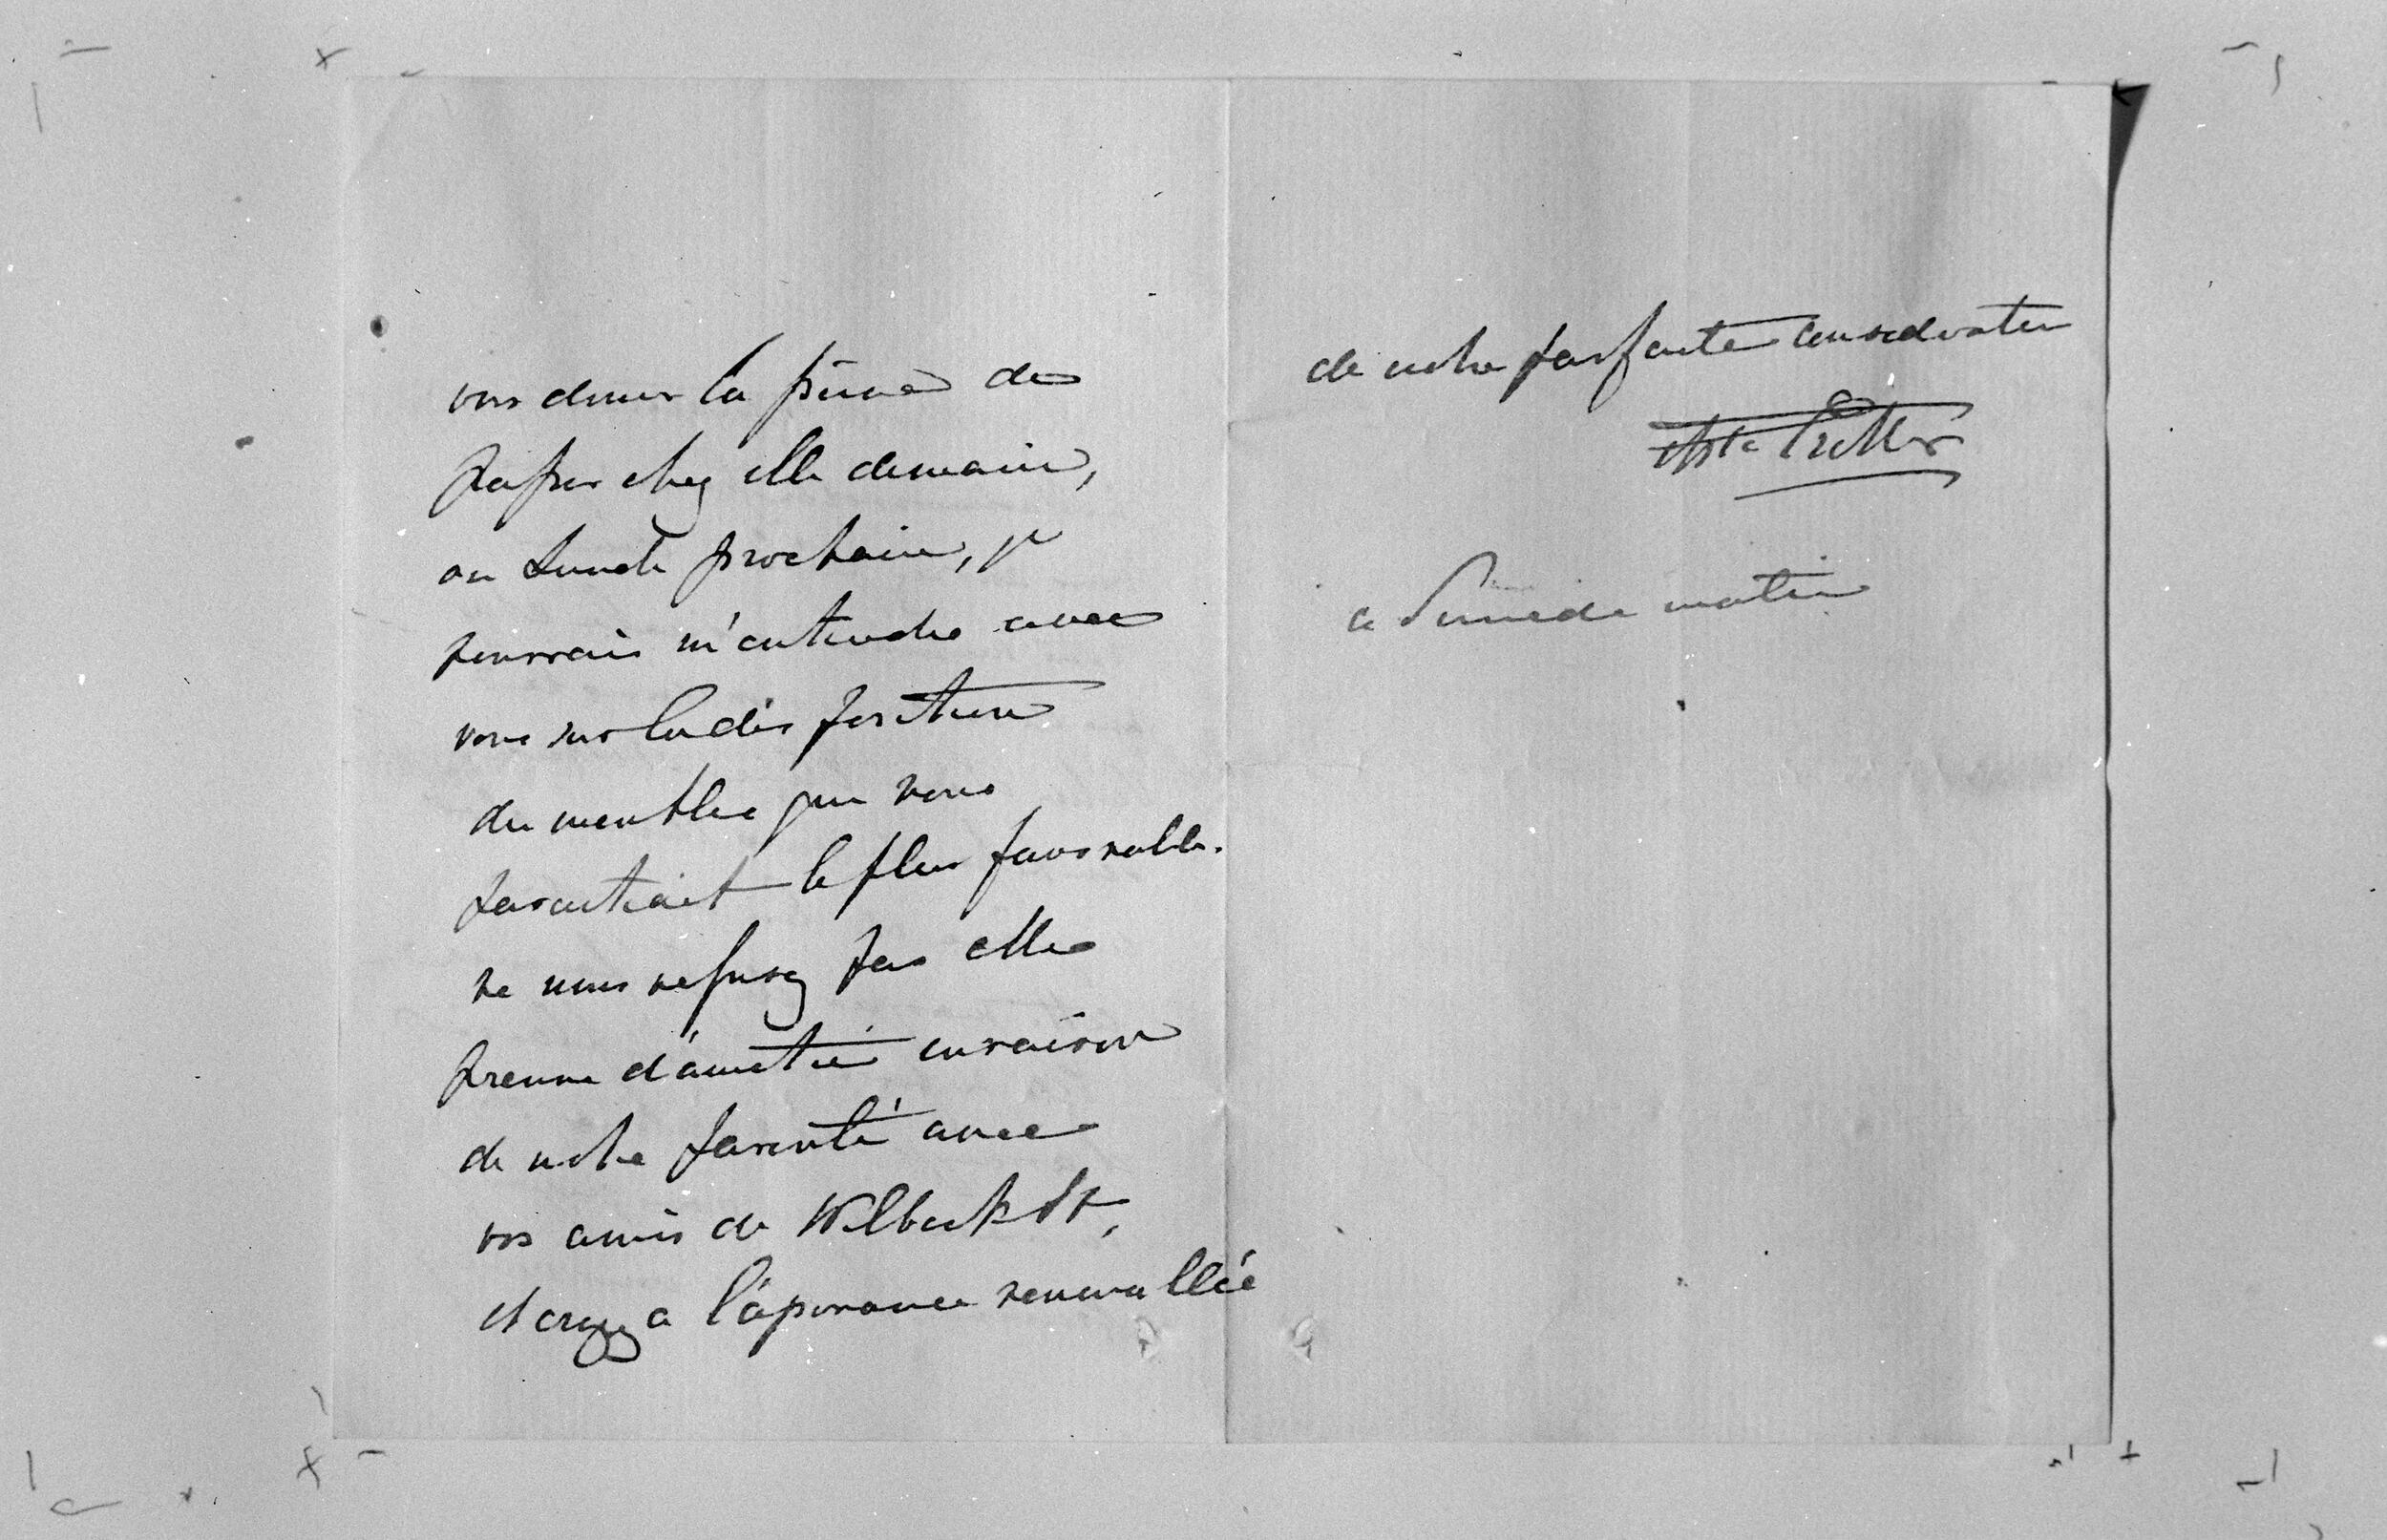 vous donner la peine de
passer chez elle demain,
ou Lundi prochain, je
pourrais m'entendre avec
vous sur la disposition
du meuble que vous
paraitrait le plus favorable.
ne nous refusez pas cette
preuve d'amitié en raison
de notre parenté avec
vos amis de
et croyez a l'assurance renouvellée
de notre parfaite consideration
ce Samedi matin